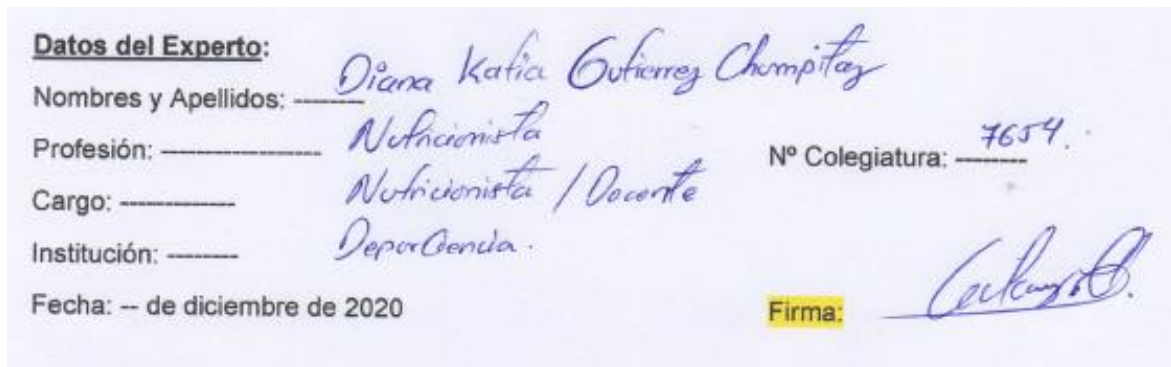 Datos del Experto:
Nombres y Apellidos: -------- Diana Katia Gutierrez Chumpitaz
Profesión: ------------------ Nutricionista
Nº Colegiatura: -------- 7654.
Cargo: ------------- Nutricionista / Docente
Institución: -------- DeporCiencia.
Fecha: -- de diciembre de 2020
Firma: